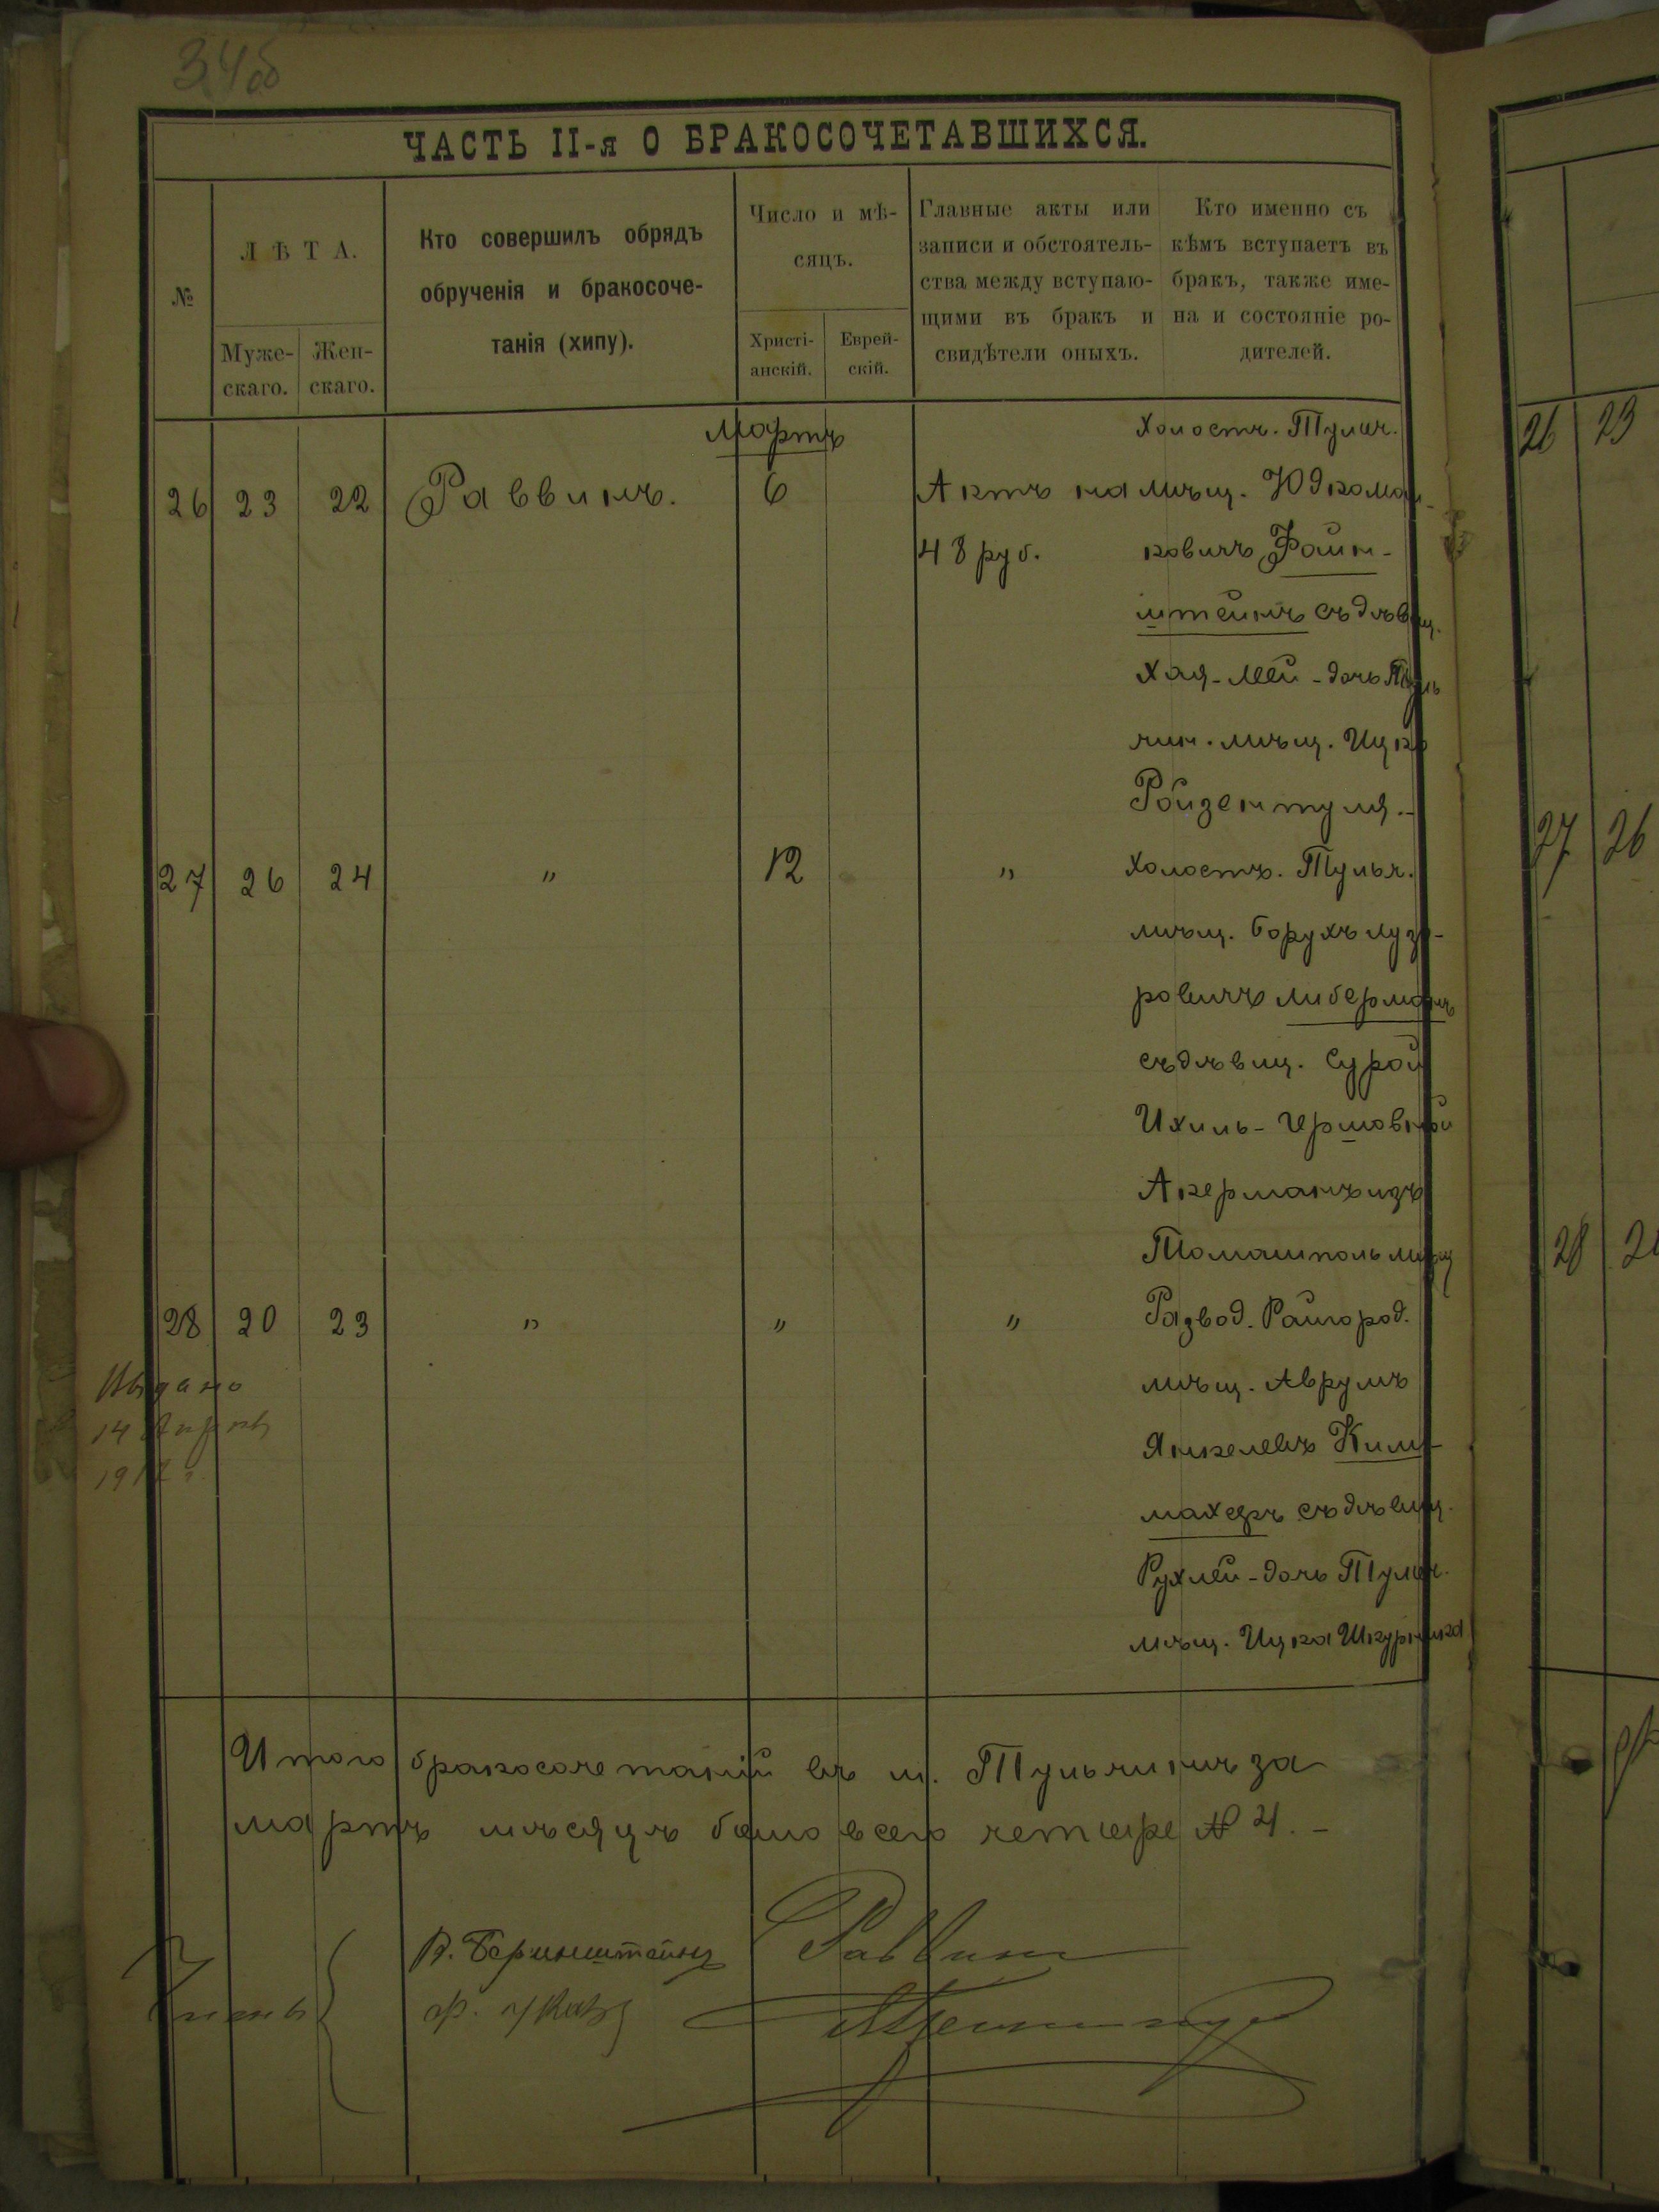 34об
ЧАСТЬ II-я О БРАКОСОЧЕТАВШИХСЯ.
№
ЛѢТА.
Муже-
скаго.
Жен-
скаго.
Кто совершилъ обрядъ
обрученія и бракосоче-
танія (хипу).
Число и мѣ-
сяцъ.
Христі-
анскій.
Еврей-
скій.
Главные акты или
записи и обстоятель-
ства между вступаю-
щими въ бракъ и
свидѣтели оныхъ.
Кто именно съ
кѣмъ вступаетъ въ
бракъ, также име-
на и состояніе ро-
дителей.
Мартъ
26 23 22 Раввинъ. 6 Актъ на
48 руб.
Холостъ. Тульч.
мѣщ. Юдкоман-
ковичъ Файн-
штейнъ съ дѣвиц.
Хая-Лей-дочь Туль
чин. мѣщ. Ицко
Ройзентуля.-
27 26 24 " 12 " Холостъ. Тульч.
мѣщ. Борухъ Лузе-
ровичъ Либерманъ
съ дѣвиц. Сурой
Ихиль-Гершовной
Акерманъ изъ
Томашполь мѣщ
28 20 23 " " " Развод. Райгород.
мѣщ. Аврумъ
Янкелевъ Кили-
махеръ съ дѣвиц.
Рухлей-дочь Тульч.
мѣщ. Ицка Шкурника
Выдано
14 Апрѣля
Итого бракосочетаній въ м. Тульчинѣ за
мартъ мѣсяцъ было всего четыре № 4.-
В. Беринштейнъ
Раввинъ
26 23
27 26
28